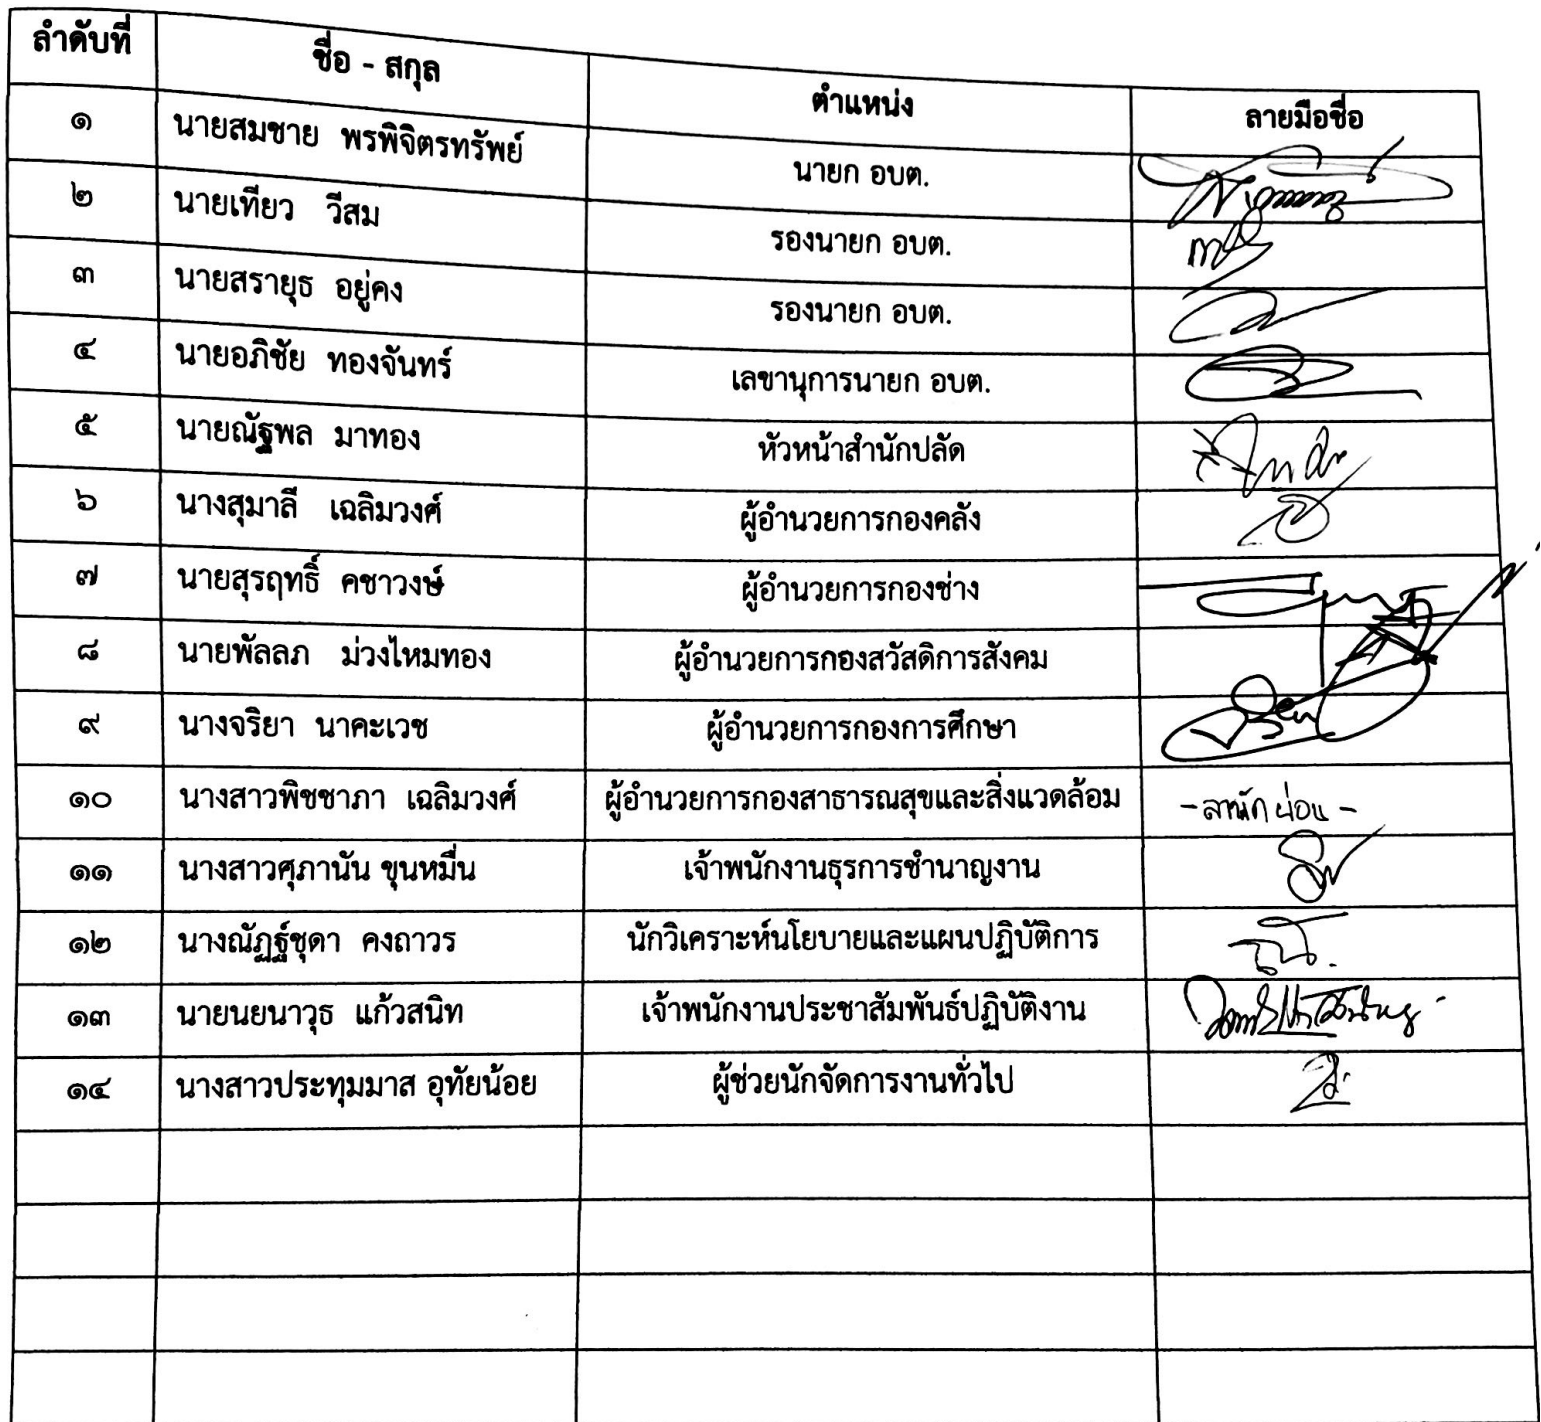 ลำดับที่ ชื่อ - สกุล ตำแหน่ง ลายมือชื่อ
๑ นายสมชาย พรพิจิตรทรัพย์ นายก อบต.
๒ นายเทียว วีสม รองนายก อบต.
๓ นายสรายุธ อยู่คง รองนายก อบต.
๔ นายอภิชัย ทองจันทร์ เลขานุการนายก อบต.
๕ นายณัฐพล มาทอง หัวหน้าสำนักปลัด
๖ นางสุมาลี เฉลิมวงศ์ ผู้อำนวยการกองคลัง
๗ นายสุรฤทธิ์ คชาวงษ์ ผู้อำนวยการกองช่าง
๘ นายพัลลภ ม่วงไหมทอง ผู้อำนวยการกองสวัสดิการสังคม
๙ นางจริยา นาคะเวช ผู้อำนวยการกองการศึกษา
๑๐ นางสาวพิชชาภา เฉลิมวงศ์ ผู้อำนวยการกองสาธารณสุขและสิ่งแวดล้อม -ลาพักผ่อน-
๑๑ นางสาวศุภานัน ขุนหมื่น เจ้าพนักงานธุรการชำนาญงาน
๑๒ นางณัฏฐ์ชุดา คงถาวร นักวิเคราะห์นโยบายและแผนปฏิบัติการ
๑๓ นายนยนาวุธ แก้วสนิท เจ้าพนักงานประชาสัมพันธ์ปฏิบัติงาน
๑๔ นางสาวประทุมมาส อุทัยน้อย ผู้ช่วยนักจัดการงานทั่วไป